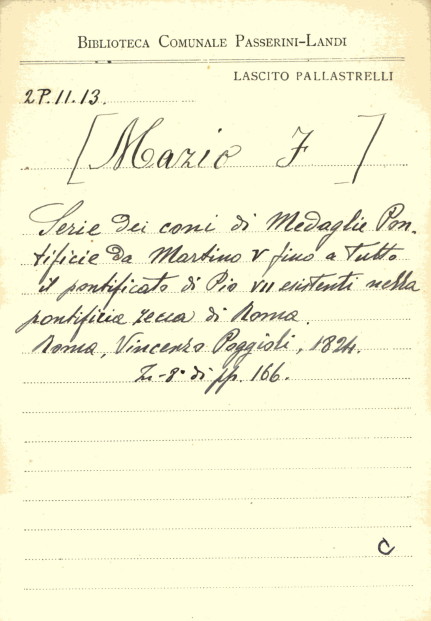 BIBLIOTECA COMUNALE PASSERINI-LANDI
LASCITO PALLASTRELLI
2P.11.13.
[Mazio F]
Serie dei coni di Medaglie Pon-
tificie da Martino V fino a tutto
il pontificato di Pio VII esistenti nella
pontificia zecca di Roma.
Roma, Vincenzo Poggioli, 1824.
In-8° di pp. 166.
C